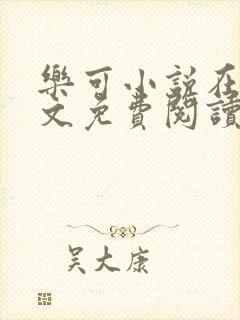 樂可小说在
文免費閱讀
吴大康